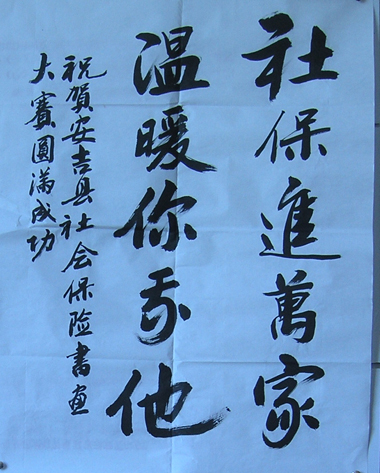 社保進萬家
温暖你我他
祝賀安吉县社会保险書画
大賽圓满成功